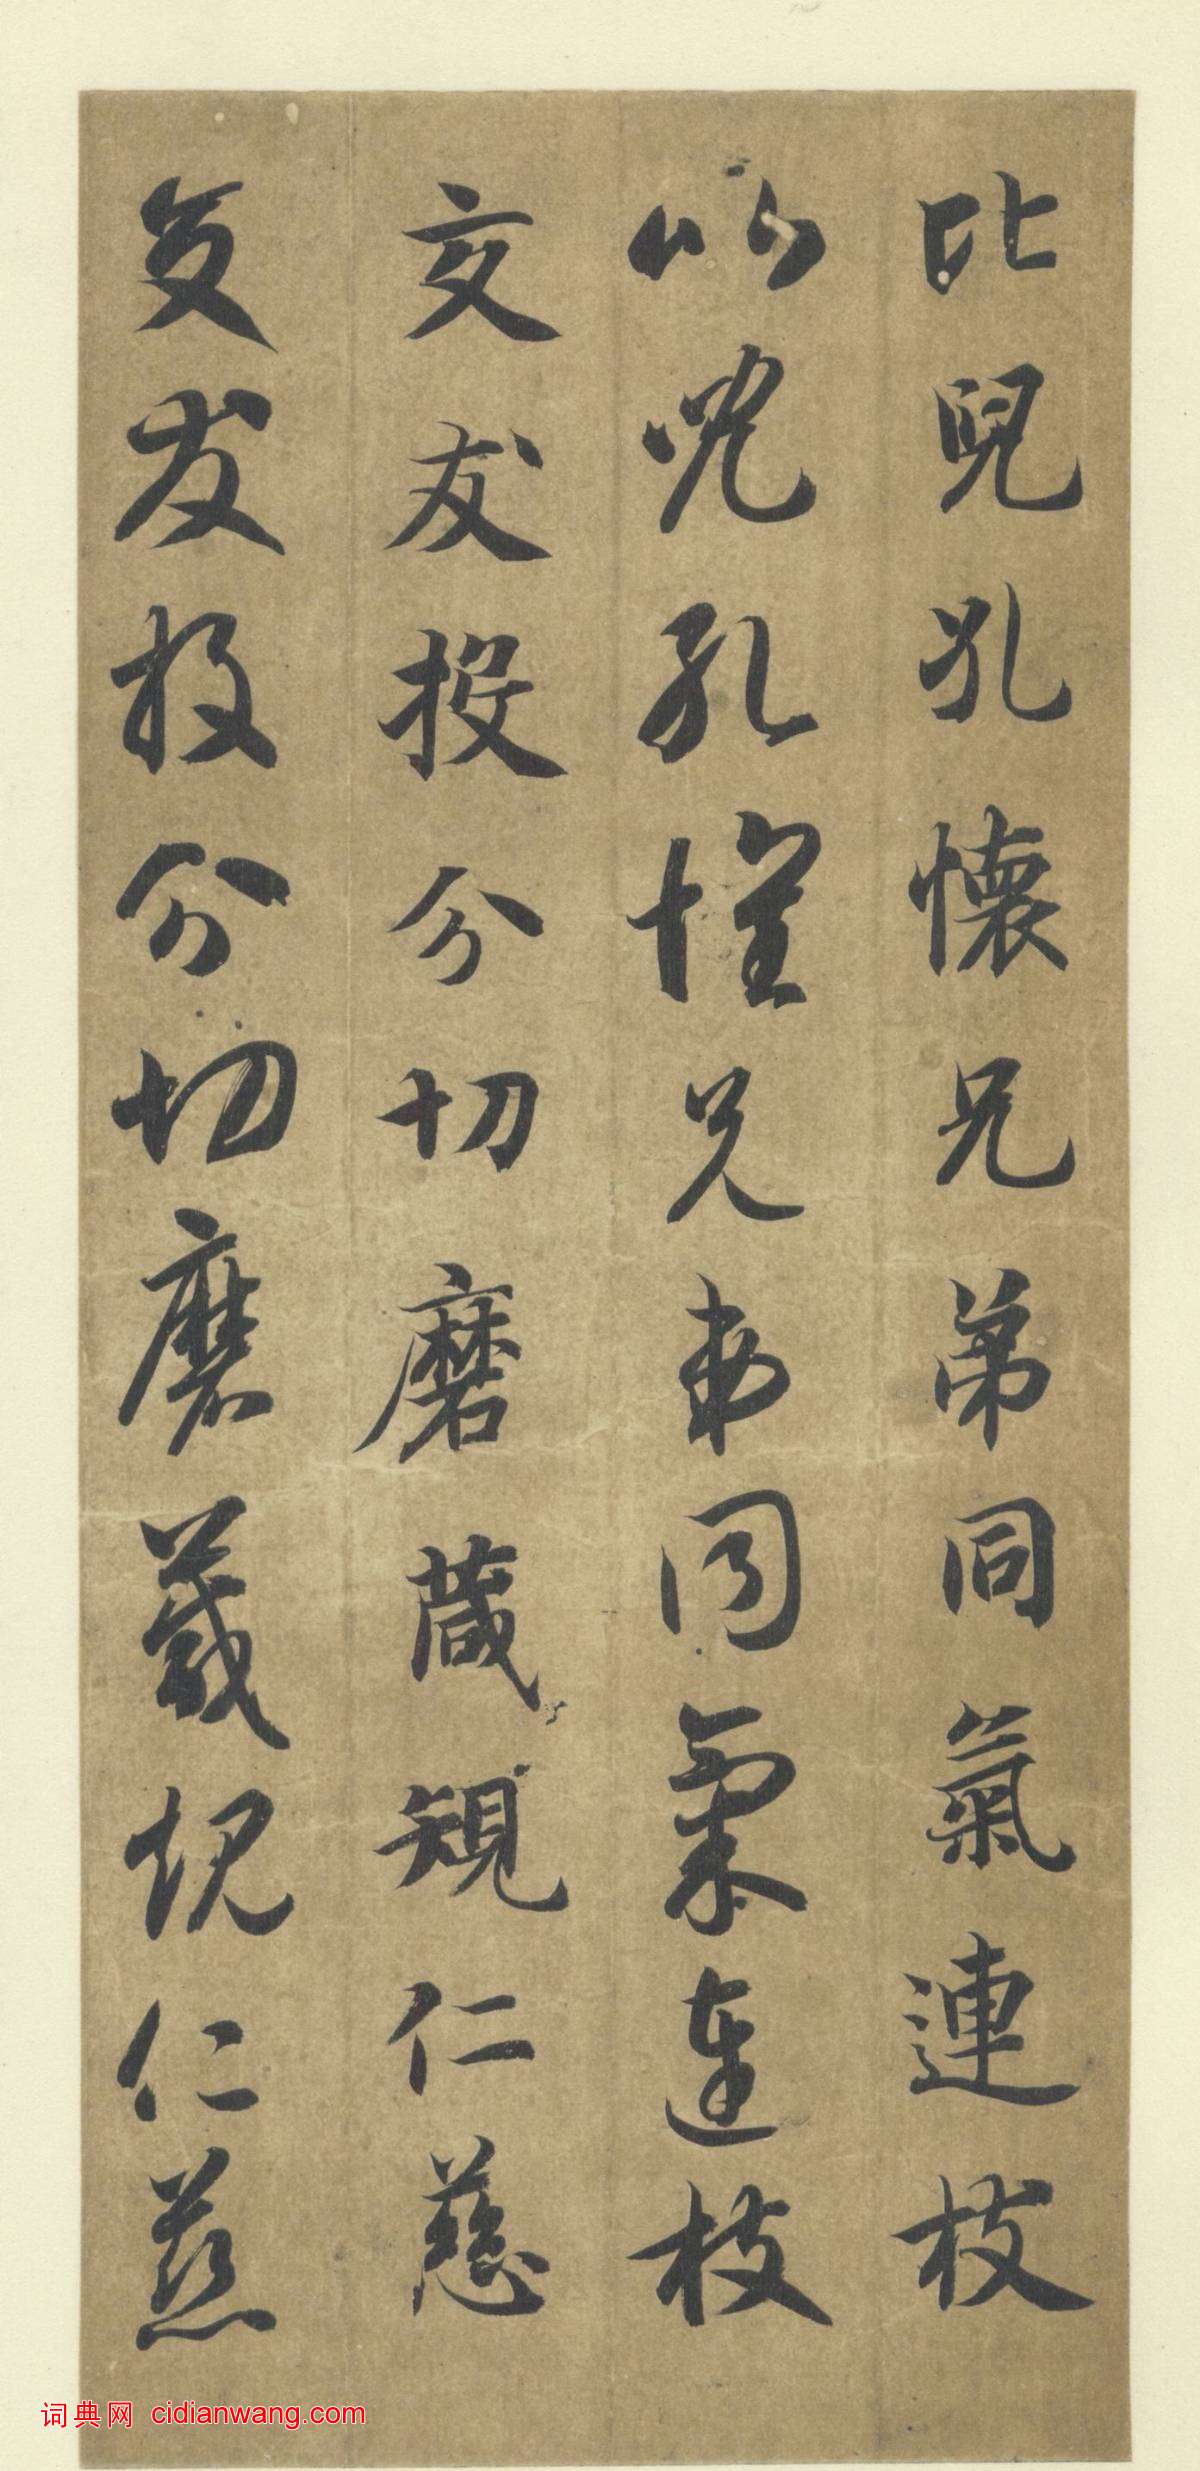 比兒孔懷兄弟同氣連枝
比兒孔懷兄弟同氣連枝
交友投分切磨箴規仁慈
交友投分切磨箴規仁慈
词典网 cidianwang.com